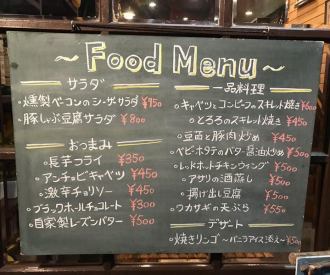 ~ Food Menu ~
サラダ
・燻製ベーコンのシーザーサラダ ¥750
・豚しゃぶ豆腐サラダ ¥800
おつまみ
・長芋フライ ¥350
・アンチョビキャベツ ¥450
・激辛チョリソー ¥450
・ブラックホールチョコレート ¥300
・自家製レーズンバター ¥500
一品料理
・キャベツとコンビーフのスキレット焼き ¥600
・とろろのスキレット焼き ¥450
・豆苗と豚肉炒め ¥450
・ベビーホタテのバター醤油炒め ¥500
・レッドホットチキンウィング ¥500
・アサリの酒蒸し ¥500
・揚げ出し豆腐 ¥500
・ワカサギの天ぷら ¥550
デザート
・焼きリンゴ ~バニラアイス添え~ ¥500